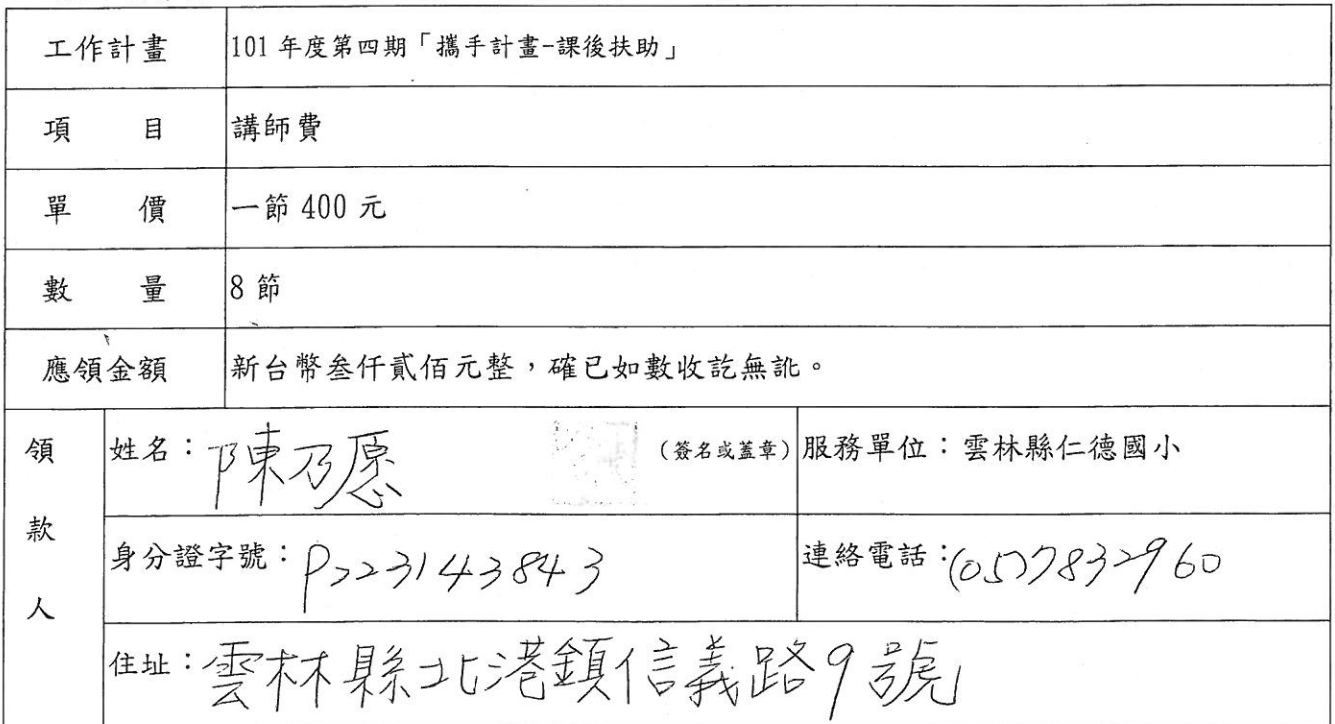 工作計畫 101年度第四期「攜手計畫-課後扶助」
項目 講師費
單價 一節400元
數量 8節
應領金額 新台幣叁仟貳佰元整，確已如數收訖無訛。
領款人
姓名：陳乃愿 (簽名或蓋章) 服務單位：雲林縣仁德國小
身分證字號：P223143843 連絡電話：(05)7832960
住址：雲林縣北港鎮信義路9號